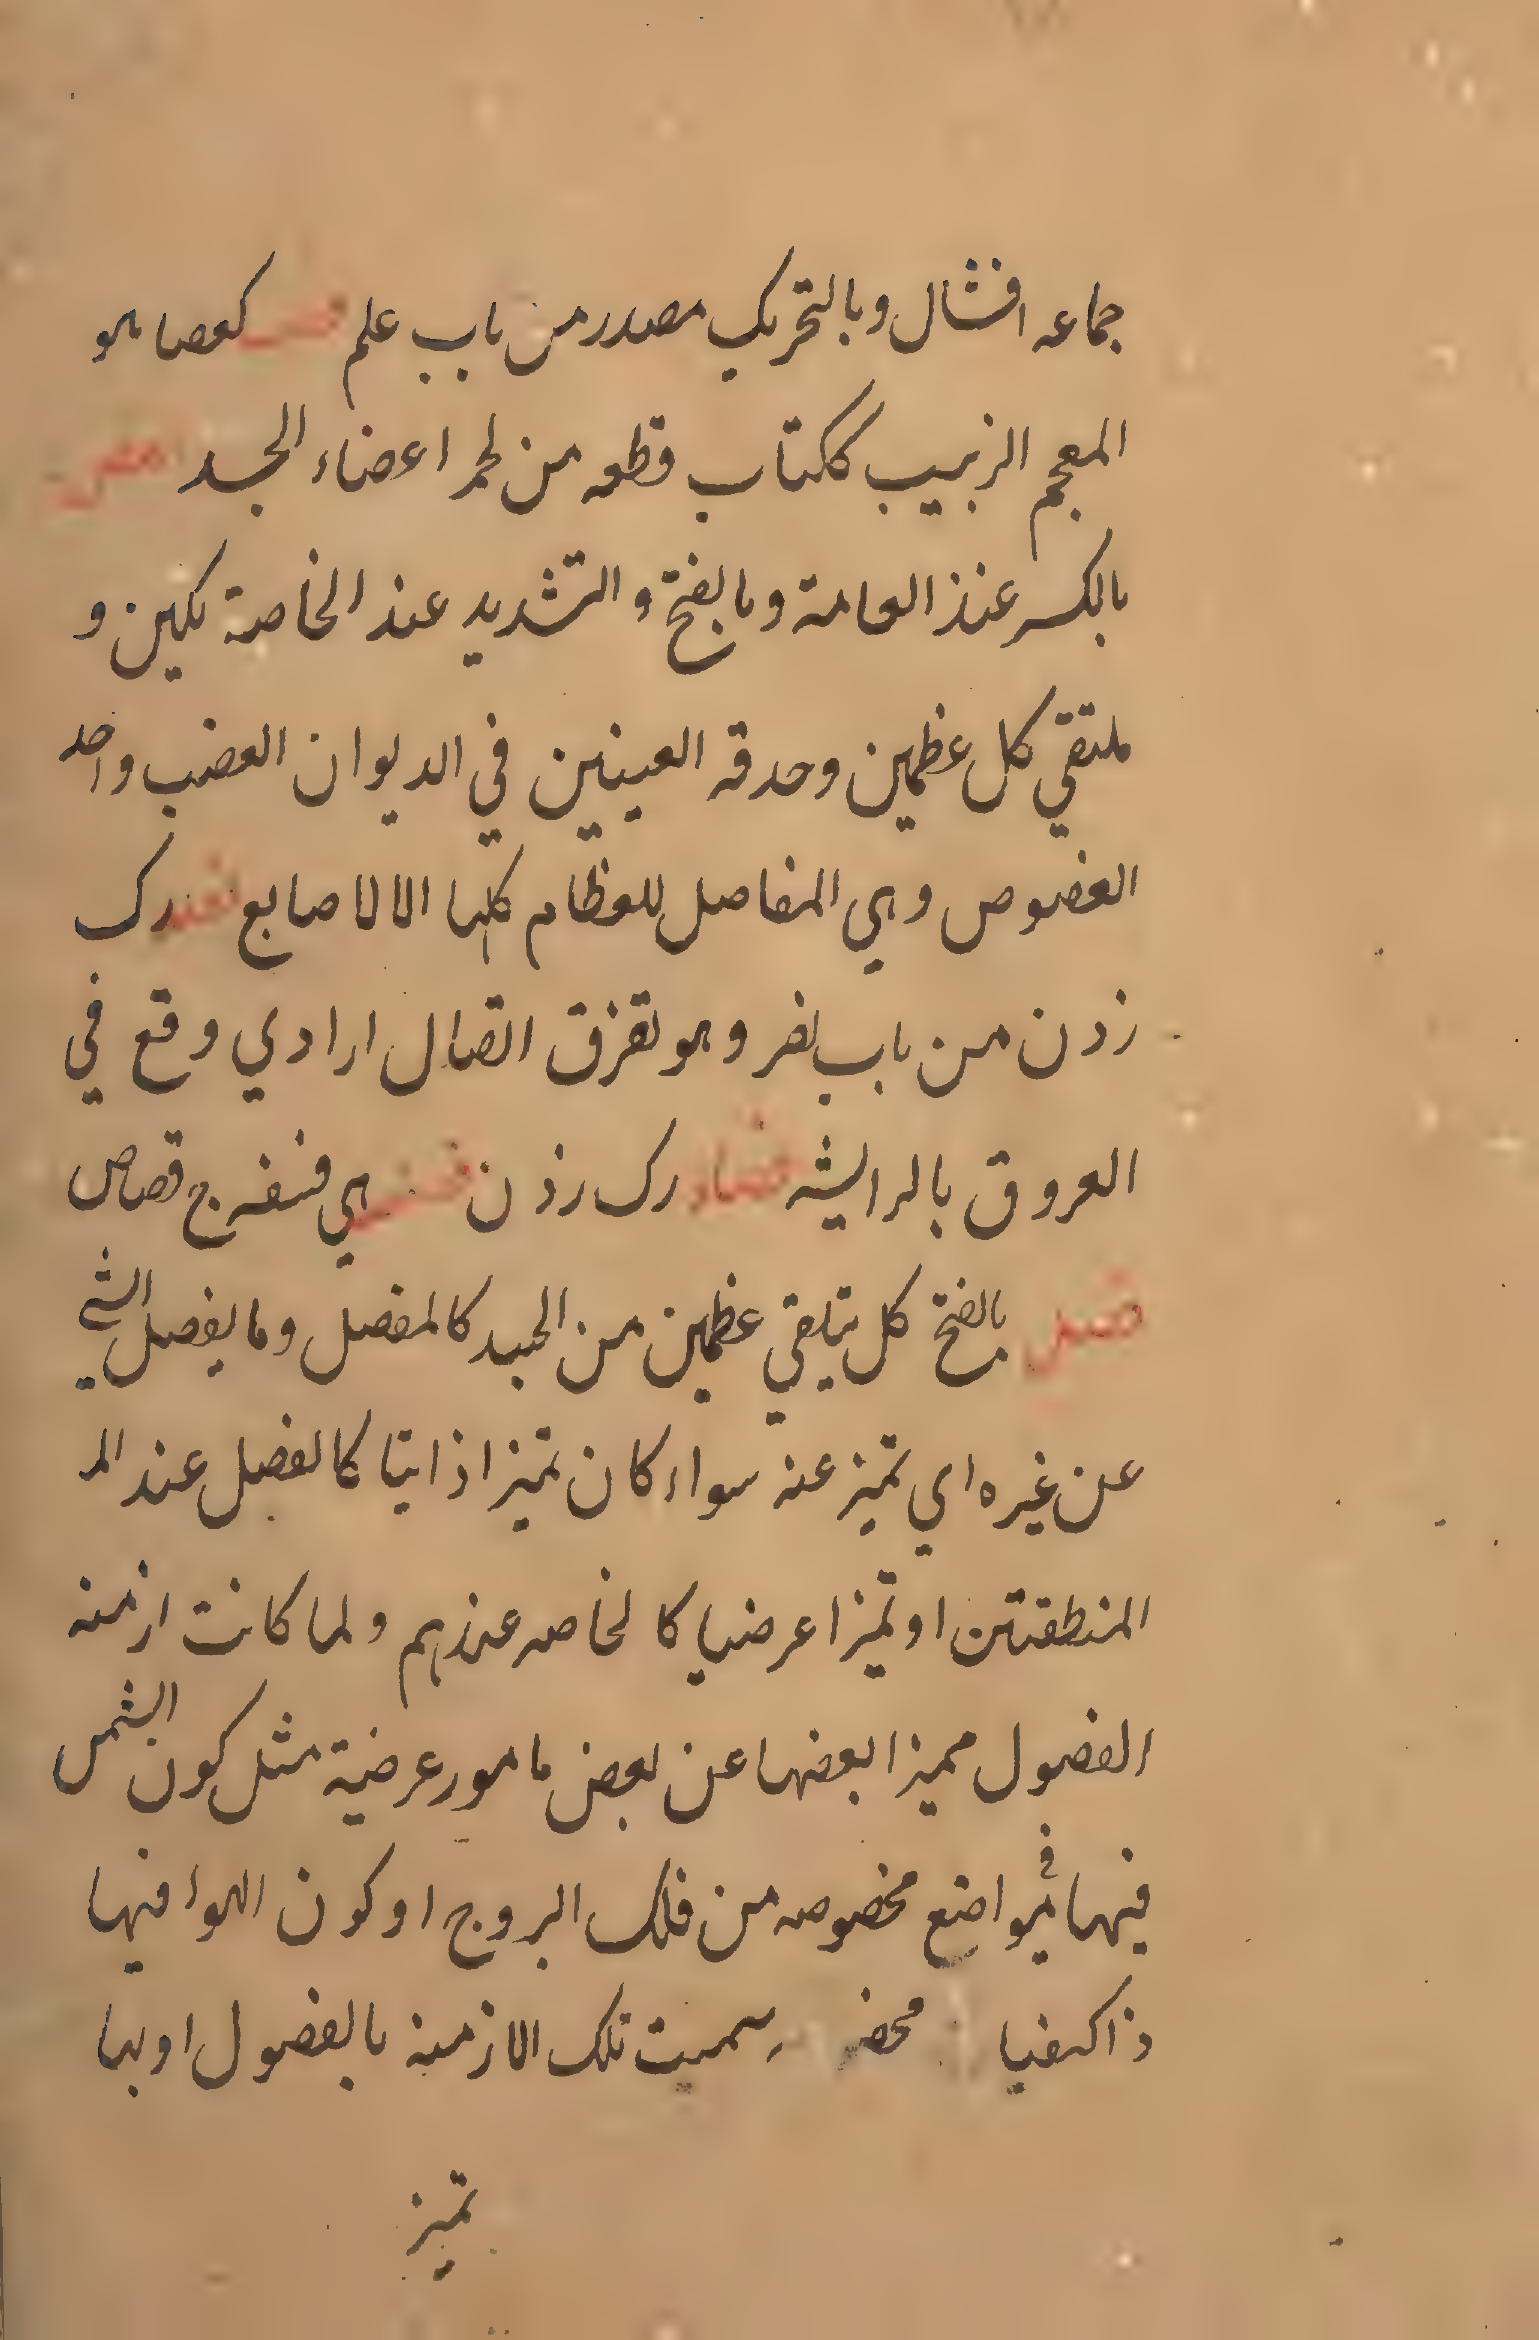 جماعه افشال وبالتحریک مصدر من باب علم فصی كعصا هو
المعجم الزبیب ككتاب قطعه من لحم اعضاء الجسد فص
بالكسر عنذ العامة وبالفتح والتشدید عند الخاصة نكین و
ملتقي كل عظمین وحدقه العینین في الدیوان الفصب واحد
الفصوص وهي المفاصل للعظام كلها الالاصابع فصد رک
زدن من باب نصر وهو تفرق اتصال ارادي وقع في
العروق بالرایشه فصاد رک زدن هي فسفرج قصاص
فصل بالفتح كل يتلقي عظمین من الجسد كالمفصل وما یفصل الشي
عن غیره اي تمیز عنه سواء كان تمیزا ذاتیا كالفصل عند الم
المنطقتین او تمیزا عرضیا كالخاصه عندهم ولما كانت ازمنه
الفصول ممیزا بعضها عن بعض بامور عرضیة مثل كون الشمس
فیها في مواضع مخصوصه من فلک البروج او كون الهوا فیها
ذا كیفیا محضر سمیت تلک الازمنة بالفصول او بها
تمیز